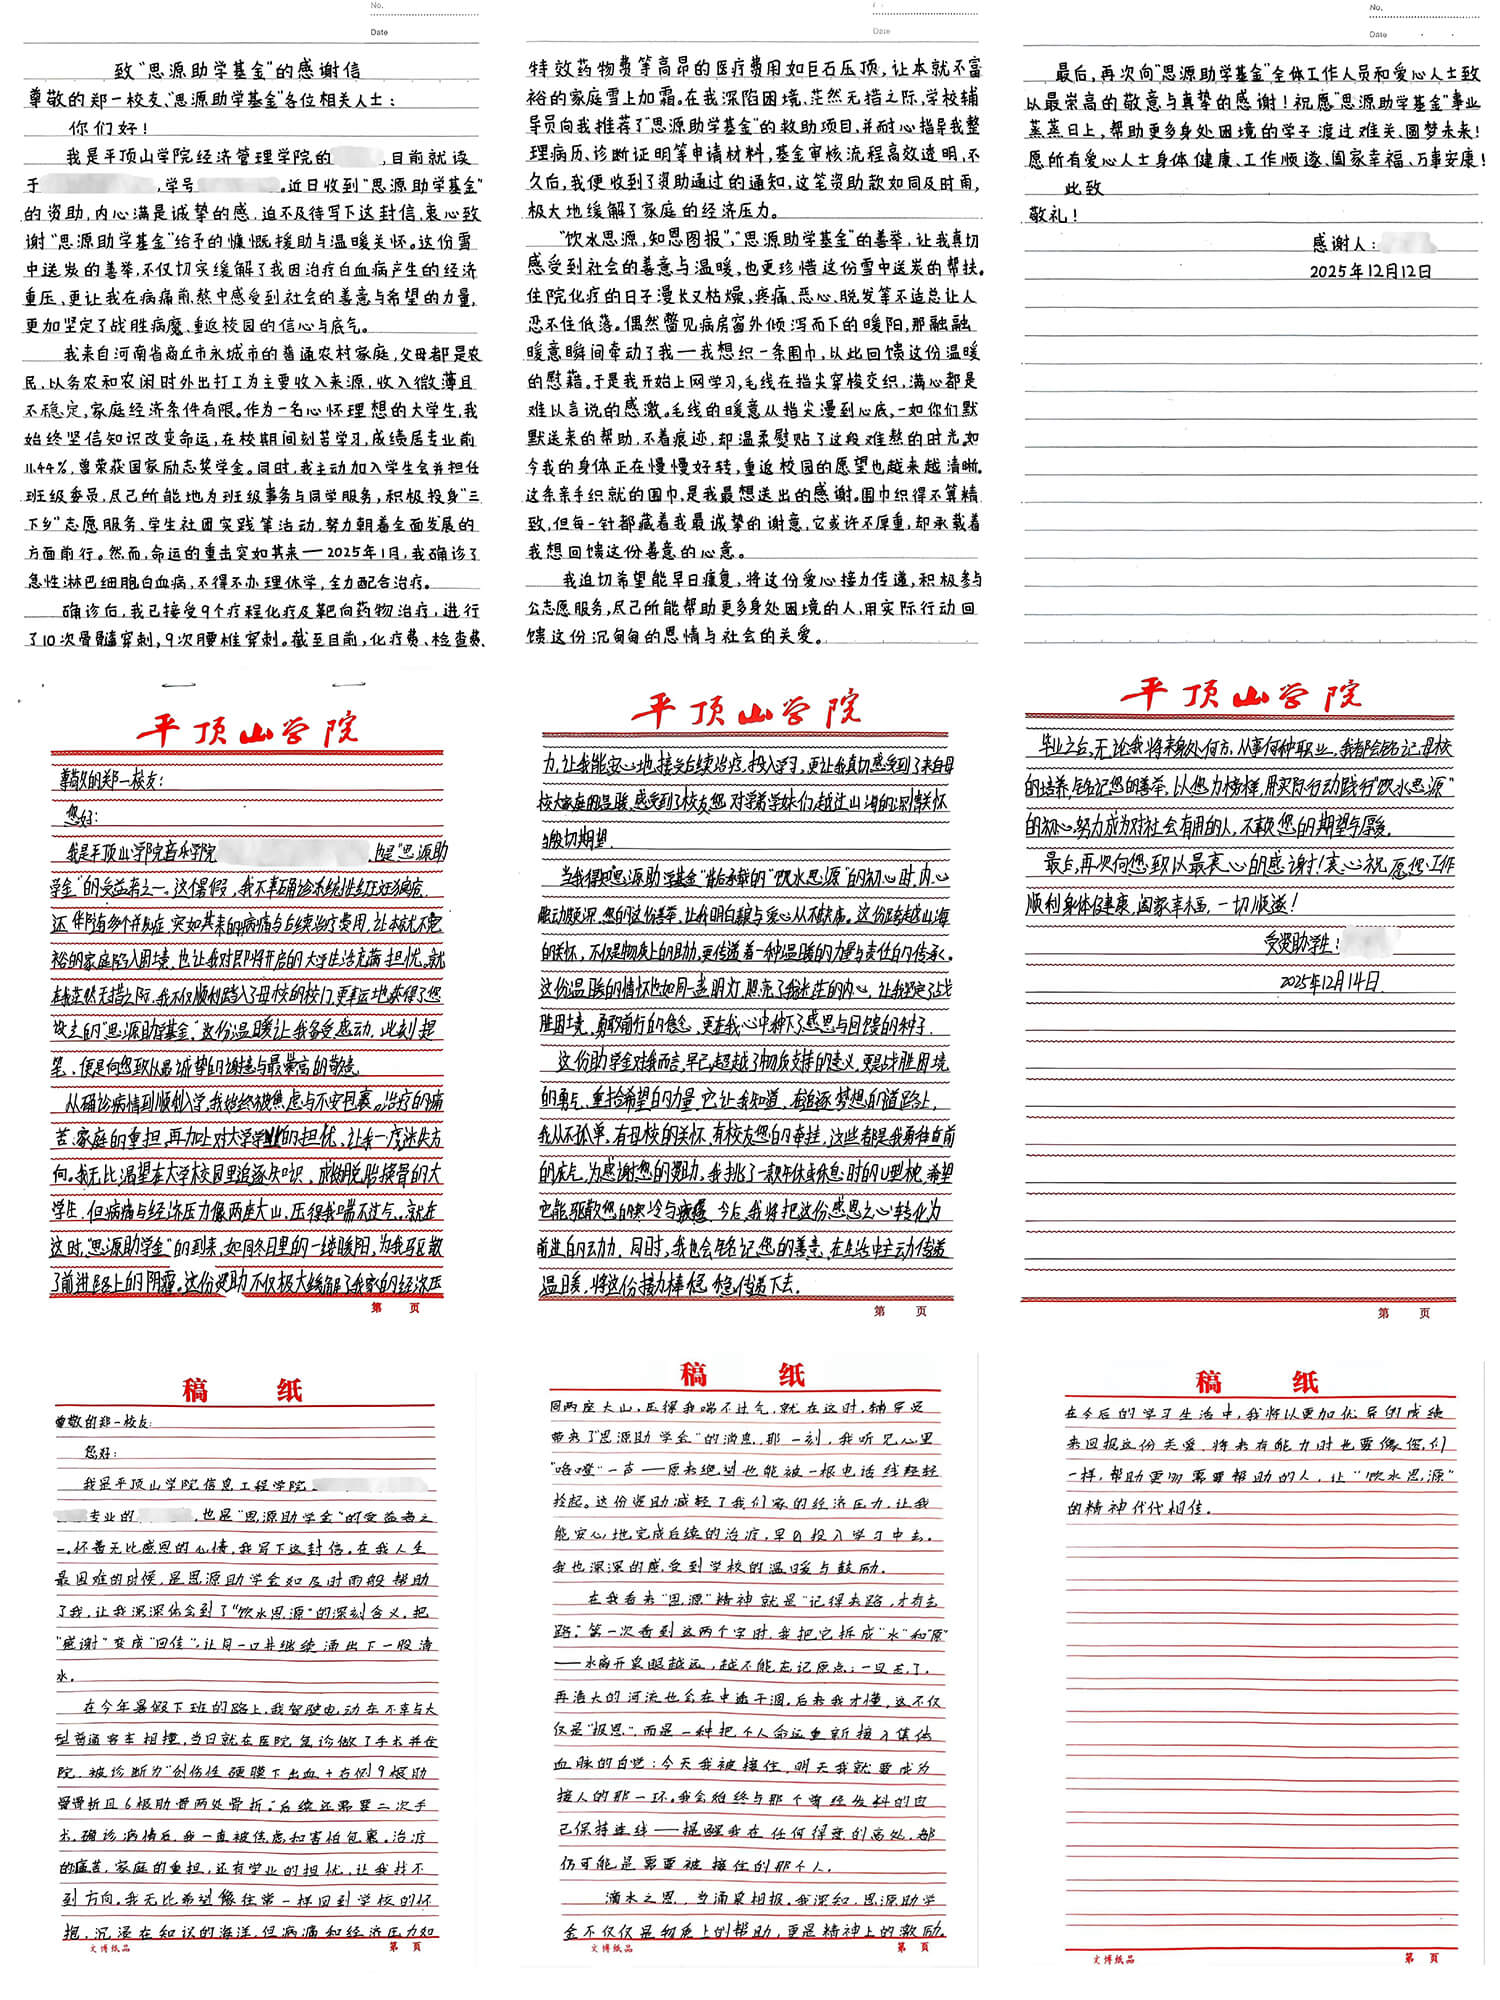 No.
Date
致“思源助学基金”的感谢信
尊敬的郑一校友、“思源助学基金”各位相关人士：
你们好！
我是平顶山学院经济管理学院的 ,目前就读
于 ,学号 。近日收到“思源助学基金”
的资助,内心满是诚挚的感,迫不及待写下这封信,衷心致
谢“思源助学基金”给予的慷慨援助与温暖关怀。这份雪
中送炭的善举,不仅切实缓解了我因治疗白血病产生的经济
重压,更让我在病痛煎熬中感受到社会的善意与希望的力量,
更加坚定了战胜病魔、重返校园的信心与底气。
我来自河南省商丘市永城市的普通农村家庭,父母都是农
民,以务农和农闲时外出打工为主要收入来源,收入微薄且
不稳定,家庭经济条件有限。作为一名心怀理想的大学生,我
始终坚信知识改变命运,在校期间刻苦学习,成绩居专业前
11.44%,曾荣获国家励志奖学金。同时,我主动加入学生会并担任
班级委员,尽己所能地为班级事务与同学服务,积极投身“三
下乡”志愿服务、学生社团实践等活动,努力朝着全面发展的
方面前行。然而,命运的重击突如其来—2025年1月,我确诊了
急性淋巴细胞白血病,不得不办理休学,全力配合治疗。
确诊后,我已接受9个疗程化疗及靶向药物治疗,进行
了10次骨髓穿刺,9次腰椎穿刺。截至目前,化疗费、检查费、
Date
特效药物费等高昂的医疗费用如巨石压顶,让本就不富
裕的家庭雪上加霜。在我深陷困境、茫然无措之际,学校辅
导员向我推荐了“思源助学基金”的救助项目,并耐心指导我整
理病历、诊断证明等申请材料,基金审核流程高效透明,不
久后,我便收到了资助通过的通知,这笔资助款如同及时雨,
极大地缓解了家庭的经济压力。
“饮水思源,知恩图报”,“思源助学基金”的善举,让我真切
感受到社会的善意与温暖,也更珍惜这份雪中送炭的帮扶。
住院化疗的日子漫长又枯燥,疼痛、恶心、脱发等不适总让人
忍不住低落。偶然瞥见病房窗外倾泻而下的暖阳,那融融
暖意瞬间牵动了我—我想织一条围巾,以此回馈这份温暖
的慰藉。于是我开始上网学习,毛线在指尖穿梭交织,满心都是
难以言说的感激。毛线的暖意从指尖漫到心底,一如你们默
默送来的帮助,不着痕迹,却温柔熨贴了这段难熬的时光。如
今我的身体正在慢慢好转,重返校园的愿望也越来越清晰。
这条亲手织就的围巾,是我最想送出的感谢。围巾织得不算精
致,但每一针都藏着我最诚挚的谢意,它或许不厚重,却承载着
我想回馈这份善意的心意。
我迫切希望能早日康复,将这份爱心接力传递,积极参与
公志愿服务,尽己所能帮助更多身处困境的人,用实际行动回
馈这份沉甸甸的恩情与社会的关爱。
No.
Date
最后,再次向“思源助学基金”全体工作人员和爱心人士致
以最崇高的敬意与真挚的感谢！祝愿“思源助学基金”事业
蒸蒸日上,帮助更多身处困境的学子渡过难关、圆梦未来！
愿所有爱心人士身体健康、工作顺遂、阖家幸福、万事安康！
此致
敬礼！
感谢人：
2025年12月12日
平顶山学院
尊敬的郑一校友：
您好：
我是平顶山学院音乐学院 ,也是“思源助
学金”的受益者之一。这个暑假,我不幸确诊系统性红斑狼疮,
还伴随有多个并发症,突如其来的病痛与后续治疗费用,让本就不宽
裕的家庭陷入困境,也让我对即将开启的大学生活充满担忧。就
在我茫然无措之际,我不仅顺利踏入了母校的校门,更幸运地获得了您
设立的“思源助学基金”。这份温暖让我备受感动,此刻提
笔,便是向您致以最诚挚的谢意与最崇高的敬意。
从确诊病情到顺利入学,我始终被焦虑与不安包裹。治疗的痛
苦、家庭的重担,再加上对大学学业的担忧,让我一度迷失方
向。我无比渴望在大学校园里追逐知识,成为脱胎换骨的大
学生,但病痛与经济压力像两座大山,压得我喘不过气。就在
这时,“思源助学金”的到来,如同冬日里的一缕暖阳,为我驱散
了前进路上的阴霾。这份资助不仅极大缓解了我家的经济压
第 页
平顶山学院
力,让我能安心地接受后续治疗,投入学习,更让我真切感受到了来自母
校大家庭的温暖,感受到了校友您对学弟学妹们,越过山海的深切关怀
与殷切期望。
当我得知“思源助学基金”背后承载的“饮水思源”的初心时,内心
触动颇深,您的这份善举,让我明白善良与爱心从不缺席。这份跨越山海
的关怀,不仅是物质上的助力,更传递着一种温暖的力量与责任的传承。
这份温暖的情怀也如同一盏明灯,照亮了我迷茫的内心,让我坚定了战
胜困境,勇敢前行的信念,更在我心中种下了感恩与回馈的种子。
这份助学金对我而言,早已超越了物质支持的意义,更是战胜困境
的勇气,重拾希望的力量,它让我知道,在追逐梦想的道路上,
我从不孤单,有母校的关怀,有校友您的牵挂,这些都是我勇往直前
的底气。为感谢您的资助,我挑了一款午休或休息时的U型枕,希望
它能驱散您的寒冷与疲惫。今后,我将把这份感恩之心转化为
前进的动力,同时,我也会铭记您的善意,在生活中主动传递
温暖,将这份接力棒稳稳传递下去。
第 页
平顶山学院
毕业之后,无论我将来身处何方,从事何种职业,我都会铭记母校
的培养,铭记您的善举,以您为榜样,用实际行动践行“饮水思源”
的初心,努力成为对社会有用的人,不辜负您的期望与厚爱。
最后,再次向您致以最衷心的感谢！衷心祝愿您工作
顺利,身体健康,阖家幸福,一切顺遂！
受资助学生：
2025年12月14日
第 页
稿 纸
尊敬的郑一校友：
您好：
我是平顶山学院信息工程学院
专业的 ,也是“思源助学金”的受益者之
一。怀着无比感恩的心情,我写下这封信。在我人生
最困难的时候,是思源助学金如及时雨般帮助
了我,让我深深体会到了“饮水思源”的深刻含义,把
“感谢”变成“回信”,让同一口井继续涌出下一股清
水。
在今年暑假下班的路上,我驾驶电动车不幸与大
型普通客车相撞,当日就在医院急诊做了手术并住
院,被诊断为“创伤性硬膜下出血+右侧9根肋
骨骨折且6根肋骨两处骨折。”后续还需要二次手
术。确诊病情后,我一直被焦虑和害怕包裹。治疗
的痛苦,家庭的重担,还有学业的担忧,让我找不
到方向。我无比希望像往常一样回到学校的怀
抱,沉浸在知识的海洋,但病痛和经济压力如
文博纸品 第 页
稿 纸
同两座大山,压得我喘不过气,就在这时,辅导员
带来了“思源助学金”的消息。那一刻,我听见心里
“咯噔”一声——原来绝望也能被一根电话线轻轻
捞起。这份资助减轻了我们家的经济压力,让我
能安心地完成后续的治疗,早日投入学习中去。
我也深深的感受到学校的温暖与鼓励。
在我看来“思源”精神就是“记得来路,才有去
路。”第一次看到这两个字时,我把它拆成“水”和“源”
——水离开泉眼越远,越不能忘记原点；一旦忘了,
再浩大的河流也会在中途干涸。后来我才懂,这不仅
仅是“报恩”,而是一种把个人命运重新接入集体
血脉的自觉：今天我被接住,明天我就要成为
接人的那一环。我会始终与那个曾经发料的自
己保持连线——提醒我在任何得意的高处,都
仍可能是需要被接住的那个人。
滴水之恩,当涌泉相报。我深知,思源助学
金不仅仅是物质上的帮助,更是精神上的激励。
文博纸品 第 页
稿 纸
在今后的学习生活中,我将以更加优异的成绩
来回报这份关爱,将来有能力时也要像您们
一样,帮助更多需要帮助的人,让“饮水思源”
的精神代代相传。
文博纸品 第 页